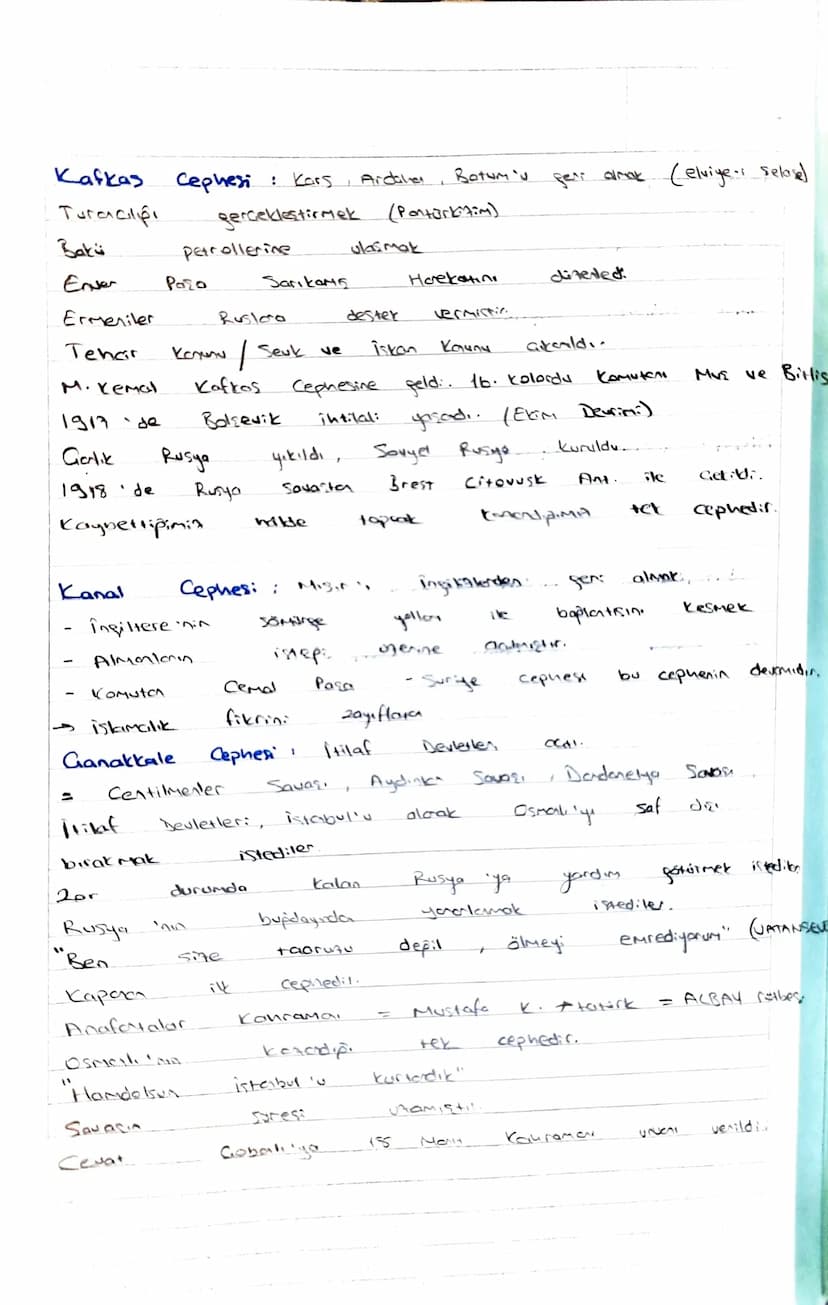 Kafkas Cephesi : Kars, Ardahan, Batum'u geri almak (elviye-i selase)
Turancılığı gerceklestirmek (Pantürkizim)
Bakü petrollerine ulaşmak
Enver Paşa Sarıkamış Harekatını düzenledi.
Ermeniler Ruslara destek vermiştir.
Tehcir Kanunu / Sevk ve İskan Kanunu çıkarıldı.
M. Kemal Kafkas Cephesine geldi. 16. Kolordu Komutanı Muş ve Bitlis
1917 'de Bolşevik ihtilali yaşadı. (Ekim Devrimi)
Çarlık Rusya yıkıldı, Sovyet Rusya kuruldu.
1918 'de Rusya Savaştan Brest Litovusk Ant. ile çekildi.
Kaybettiğimiz halde toprak kazandığımız tek cephedir.
Kanal Cephesi : Mısır'ı İngilizlerden geri almak,
- İngiltere'nin sömürge yolları ile bağlantısını kesmek
- Almanların isteği üzerine açılmıştır.
- Komutan Cemal Paşa - Suriye cephesi bu cephenin devamıdır.
→ İslamcılık fikrini zayıflatan
Çanakkale Cephesi : İtilaf Devletleri açtı.
= Centilmenler Savaşı, Aydınlar Savaşı, Dardanelya Savaşı
İtilaf Devletleri, İstanbul'u alarak Osmanlı'yı saf dışı
bırakmak istediler.
Zor durumda kalan Rusya'ya yardım götürmek istediler
Rusya'nın buğdayından yararlanmak istediler.
"Ben size taaruzu değil, ölmeyi emrediyorum" (VATANSEVE
Kapanan ilk cephedir.
Anafartalar Kahramanı = Mustafa K. Atatürk = ALBAY rütbesi
Osmanlı'nın kazandığı tek cephedir.
"Hamdolsun istanbul'u kurtardık"
Savaşın süresi uzamıştır.
Cevat Çobanlı'ya 18 Mart Kahramanı unvanı verildi.